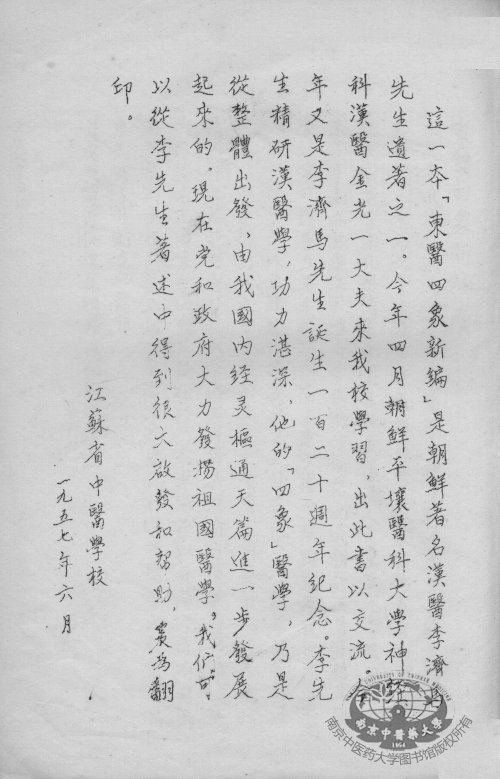 這一本「東醫四象新編」是朝鮮著名漢醫李濟馬
先生遺著之一。今年四月朝鮮平壤醫科大學神經
科漢醫金光一大夫來我校學習，出此書以交流。今
年又是李濟馬先生誕生一百二十週年紀念。李先
生精研漢醫學，功力湛深，他的「四象」醫學，乃是
從整體出發，由我國內经灵樞通天篇進一步發展
起來的。現在党和政府大力發揚祖國醫學。我們可
以從李先生著述中得到很大啟發和幫助，爰為翻
印。
江蘇省中醫學校
一九五七年六月
NANJING UNIVERSITY OF CHINESE MEDICINE
南京中醫藥大學
1954
南京中医药大学图书馆版权所有